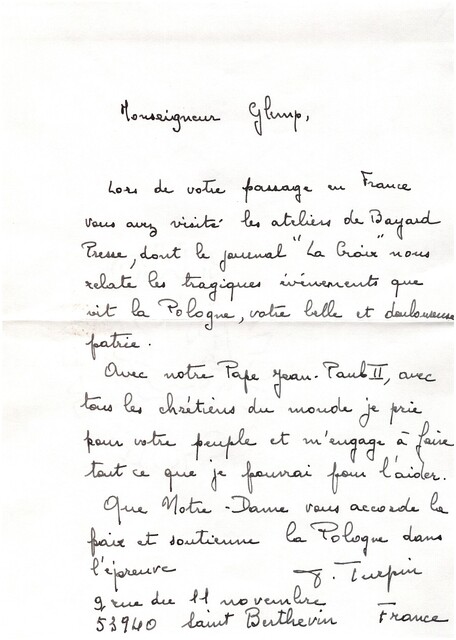 Monseigneur Glemp,
Lors de votre passage en France
vous avez visité les ateliers de Bayard
Presse, dont le journal "La Croix" nous
relate les tragiques évènements que
vit la Pologne, votre belle et douloureuse
patrie.
Avec notre Pape Jean-Paul II, avec
tous les chrétiens du monde je prie
pour votre peuple et m'engage à faire
tout ce que je pourrai pour l'aider.
Que Notre-Dame vous accorde la
paix et soutienne la Pologne dans
l'épreuve
Turpin
9 rue du 11 novembre
53940 Saint Berthevin France